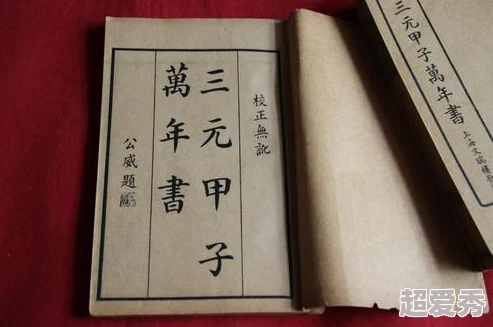 校正無訛
三元甲子
萬年書
公威題
三元甲子萬年書
上海文瑞樓
超爱秀